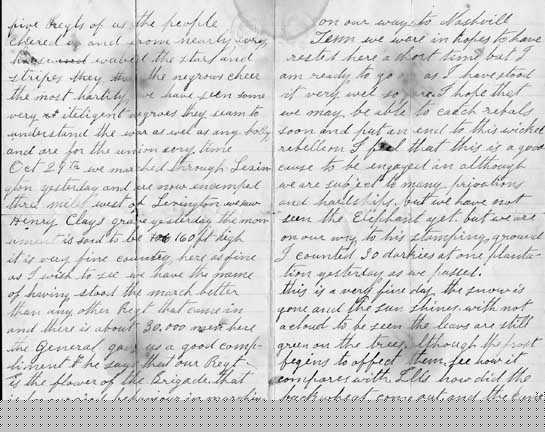 five Regts of us the people
cheered us and from nearly every
house waved the stars and
stripes they the negrows cheer
the most hartily we have seen some
very inteligent negroes they seam to
understand the war as well as any body
and are for the union every time
Oct 29th we marched through Lexin
gton yesterday and are now encamped
three miles west of Lexington we saw
Henry Clays grave yesterday the mon
ument is said to be 160 ft high
it is very fine country here as fine
as I wish to see we have the name
of having stood the march better
than any other Regt that came in
and there is about 30.000 here
the General gave us a good comp-
liment he says that our Regt
is the flower of the brigade that
is in marching
on our way to Nashvill
Tenn we were in hopes to have
rested here a short time but I
am ready to go on as I have stood
it very well so far. I hope that
we may be able to catch rebals
soon and put an end to this wicked
rebellion I feel that this is a good
cause to be engaged in although
we are subject to many privations
and hardships, but we have not
seen the Elephant yet but we are
on our way to his stamping ground
I counted 30 darkies at one planta-
tion yesterday as we passed.
this is a very fine day the snow is
gone and the sun shines with not
a cloud to be seen the leavs are still
green on the trees although the frost
begins to affect them. see how it
compares with Ills how did the
buck wheat come out and the